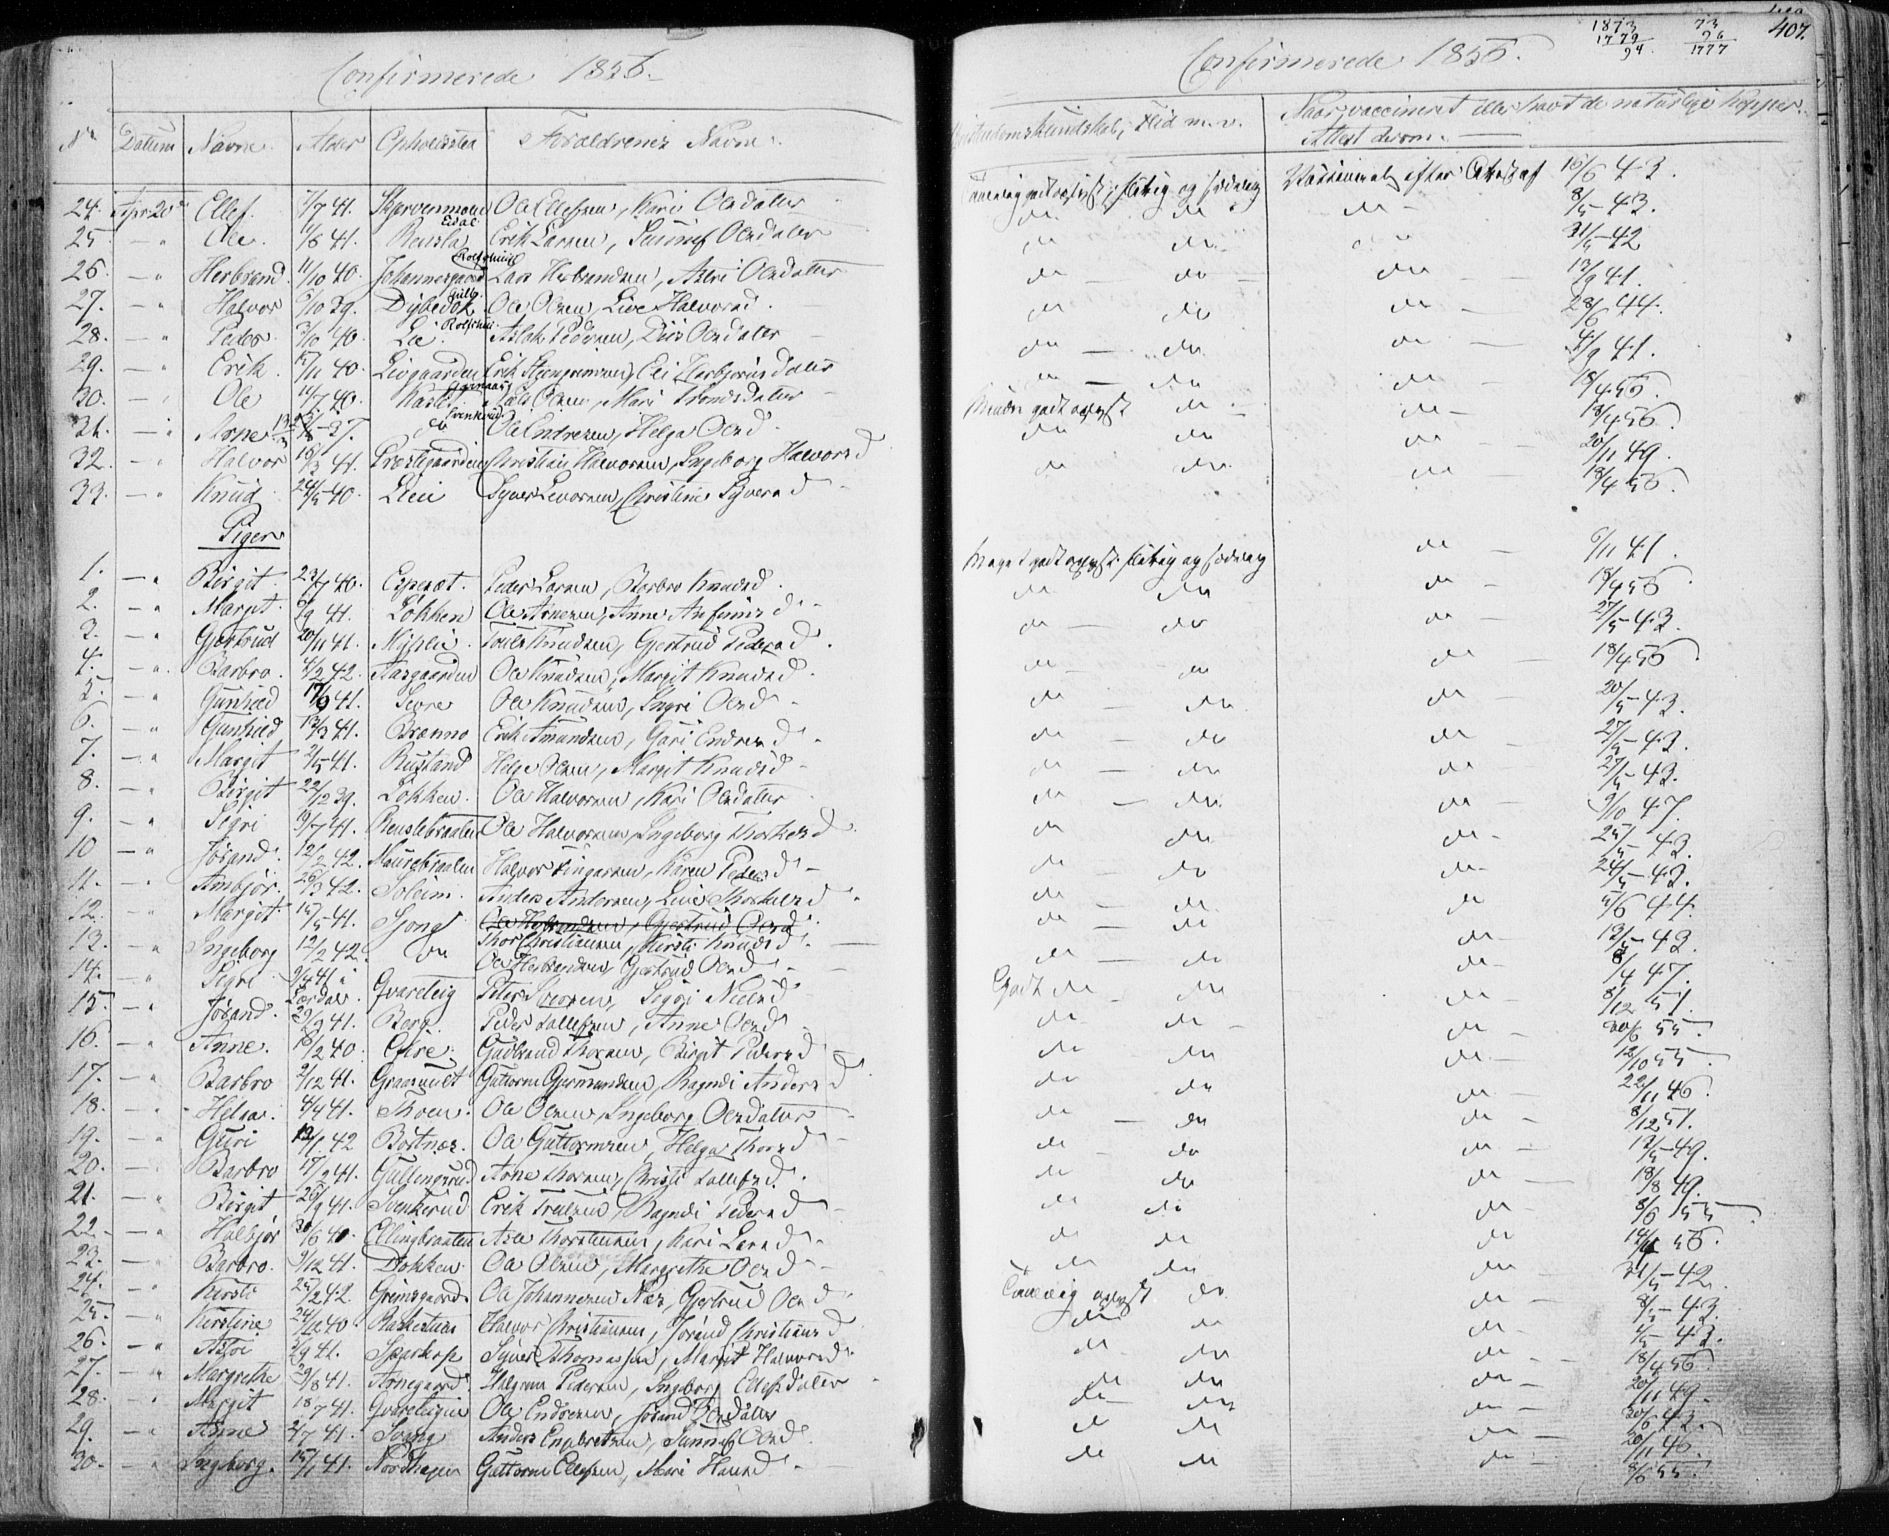 Confirmerede 1856.
No Datum Navne Alder Opholdssted Forældrenes Navne.
24. Apr 20de Ellef. 7/7 41. Skjervenmoen Ole Ellefsen, Kari Olsdatter
25. Ole. 41. Rensla Erik Larsen, Sunnef Olsdatter
26. Herbrand 11/10 40. Johannesgaard Lars Herbrandsen, Astri Olsdatter
27. Halvor 6/10 39. Dybedok Ole Olsen, Live Halvorsd.
28. Peder 3/10 40. Lie. Aslak Pedersen, Olsdatter
29. Erik 15/11 40. Livgaarden Erik Steengrimsen, Eli Herbjørnsdatter
30. Ole 14/7 40. Olsen, Mari Trondsdatter
31. Arne 37. do Ole Endresen, Helga Olsd.
32. Halvor 16/3 41. Præstegaarden Christian Halvorsen, Ingeborg Halvorsd
33. Knud 24/5 40. Lien Syver Levorsen, Christine Syversd
Piger
1. Birgit. 23/7 40. Espeset. Peder Larsen, Barbro Knudsd.
2. Margit. 6/9 41. Løkken Ole Arnesen, Anne Arfinnsd.
3. Gjertrud 20/11 41. Myhlie. Knudsen, Gjertrud Pedersd.
4. Barbro. 4/2 42. Aasgaarden Ole Knudsen, Margit Knudsd.
5. Gunhild 17/9 41. Sevre Ole Knudsen, Ingri Olsd
6. Gunhild 13/3 41. Brenno Erik Amundsen, Guri Endresd.
7. Margit 2/5 41. Rustand Helge Olsen, Margit Knudsd
8. Birgit 22/12 39. Løkken. Ole Halvorsen, Kari Olsdatter
9. Sigri 9/7 41. Renslebraaten Ole Halvorsen, Ingeborg Thorkelsd.
10 Jørand. 12/2 42. Haurebraaten Halvor Fingarsen, Karen Pedersd
11. Ambjør. 26/3 42. Soleim. Anders Andersen, Live Thorkelsd.
12. Margit. 15/5 41. Sjong Ole Herbrandsen, Gjertrud Olsd
Thor Christiansen, Kirsti Knudsd.
13. Ingeborg 12/2 42. do Ole Herbrandsen, Gjertrud Olsd
14. Sigri 9/4 41 i Lærdal. Qvareteig Peter Iversen, Sigri Nielsd
15. Jørand. 29/3 41. Berg. Peder Tollefsen, Anne Olsd
16. Anne. 16/2 40. Eire. Gudbrand Thorsen, Birgit Pedersd
17. Barbro 2/12 41. Graasuelt Guttorm Germundsen, Ragndi Andersd
18. Helga. 4/4 41. Thoen. Ole Olsen, Ingeborg Olsdatter
19. Guri 13/1 42 Bortnæs. Ole Guttormsen, Helga Thorsd
20. Barbro 17/2 41. Gullingsrud Arne Thorsen, Christi Tollefsd.
21. Birgit 26/9 41. Svenkerud Erik Truelsen, Ragndi Pedersd
22. Halbjør 30/6 40. Ellingbraaten Asle Thorstensen, Kari Larsd.
23. Barbro. 9/12 41. Dokken Ole Olsen, Margrethe Olsd
24. Kirsti 25/2 42. Grimsgaard Ole Johannesen Næs, Gjertrud Olsd
25. Kirstine 24/12 40 Halvor Christiansen, Jørand Christiansd
26. Astri 41. Sparkop Syver Thomassen, Margit Halvorsd.
27. Margrethe 29/8 41. Arnegaard. Halgrim Pedersen, Ingeborg Ellefsdatter
28. Margit 18/7 41. Qvareteigen Ole Endresen, Jørand Olsdatter
29. Anne 2/7 41. Sogng Anders Engebretsen, Sunnef Olsd.
30. Ingeborg. 15/1 41. Nordhagen Guttorm Ellefsen, Mari Hansd
Confirmerede 1856.
1873
1779
94.
73
96
1777
407.
Christendomskundskab, Flid m. v. Naar vaccineret eller havt de naturlige Kopper. Attest derom.
Temmelig godt oplyst, flittig og sædelig Vaccineret efter Attest af 16/6 43.
do do do 8/5 43.
do do do 31/5 42
do do do 13/9 41.
do do do 28/6 44.
do do do 4/9 41.
do do do 18/4 56.
Mindre godt oplyst do do 18/4 56.
do do do 20/11 49.
do do do 18/4 56.
Meget godt oplyst, flittig og sædelig do 6/11 41.
do do do 18/4 56
do do do 27/5 43.
do do do 18/4 56
do do do 20/5 43.
do do do 27/5 43.
do do do 27/5 43.
do do do 9/10 47.
do do do 25/5 43.
do do do 24/5 43.
do do do 5/6 44.
do do do 13/5 43.
do do do 8/4 47.
Godt do do do 8/12 51.
do do do 30/6 55.
do do do 12/10 55.
do do do 22/11 46.
do do do 8/12 51.
do do do 12/5 49.
do do do 18/8 49.
do do do 8/6 55.
do do do 14/4 56.
do do do 31/5 42.
Temmelig oplyst do do 8/5 43.
do do do 43.
do do do 18/4 56
do do do 20/11 49.
do do do 30/6 42.
do do do 20/11 46.
do do do 8/6 55.